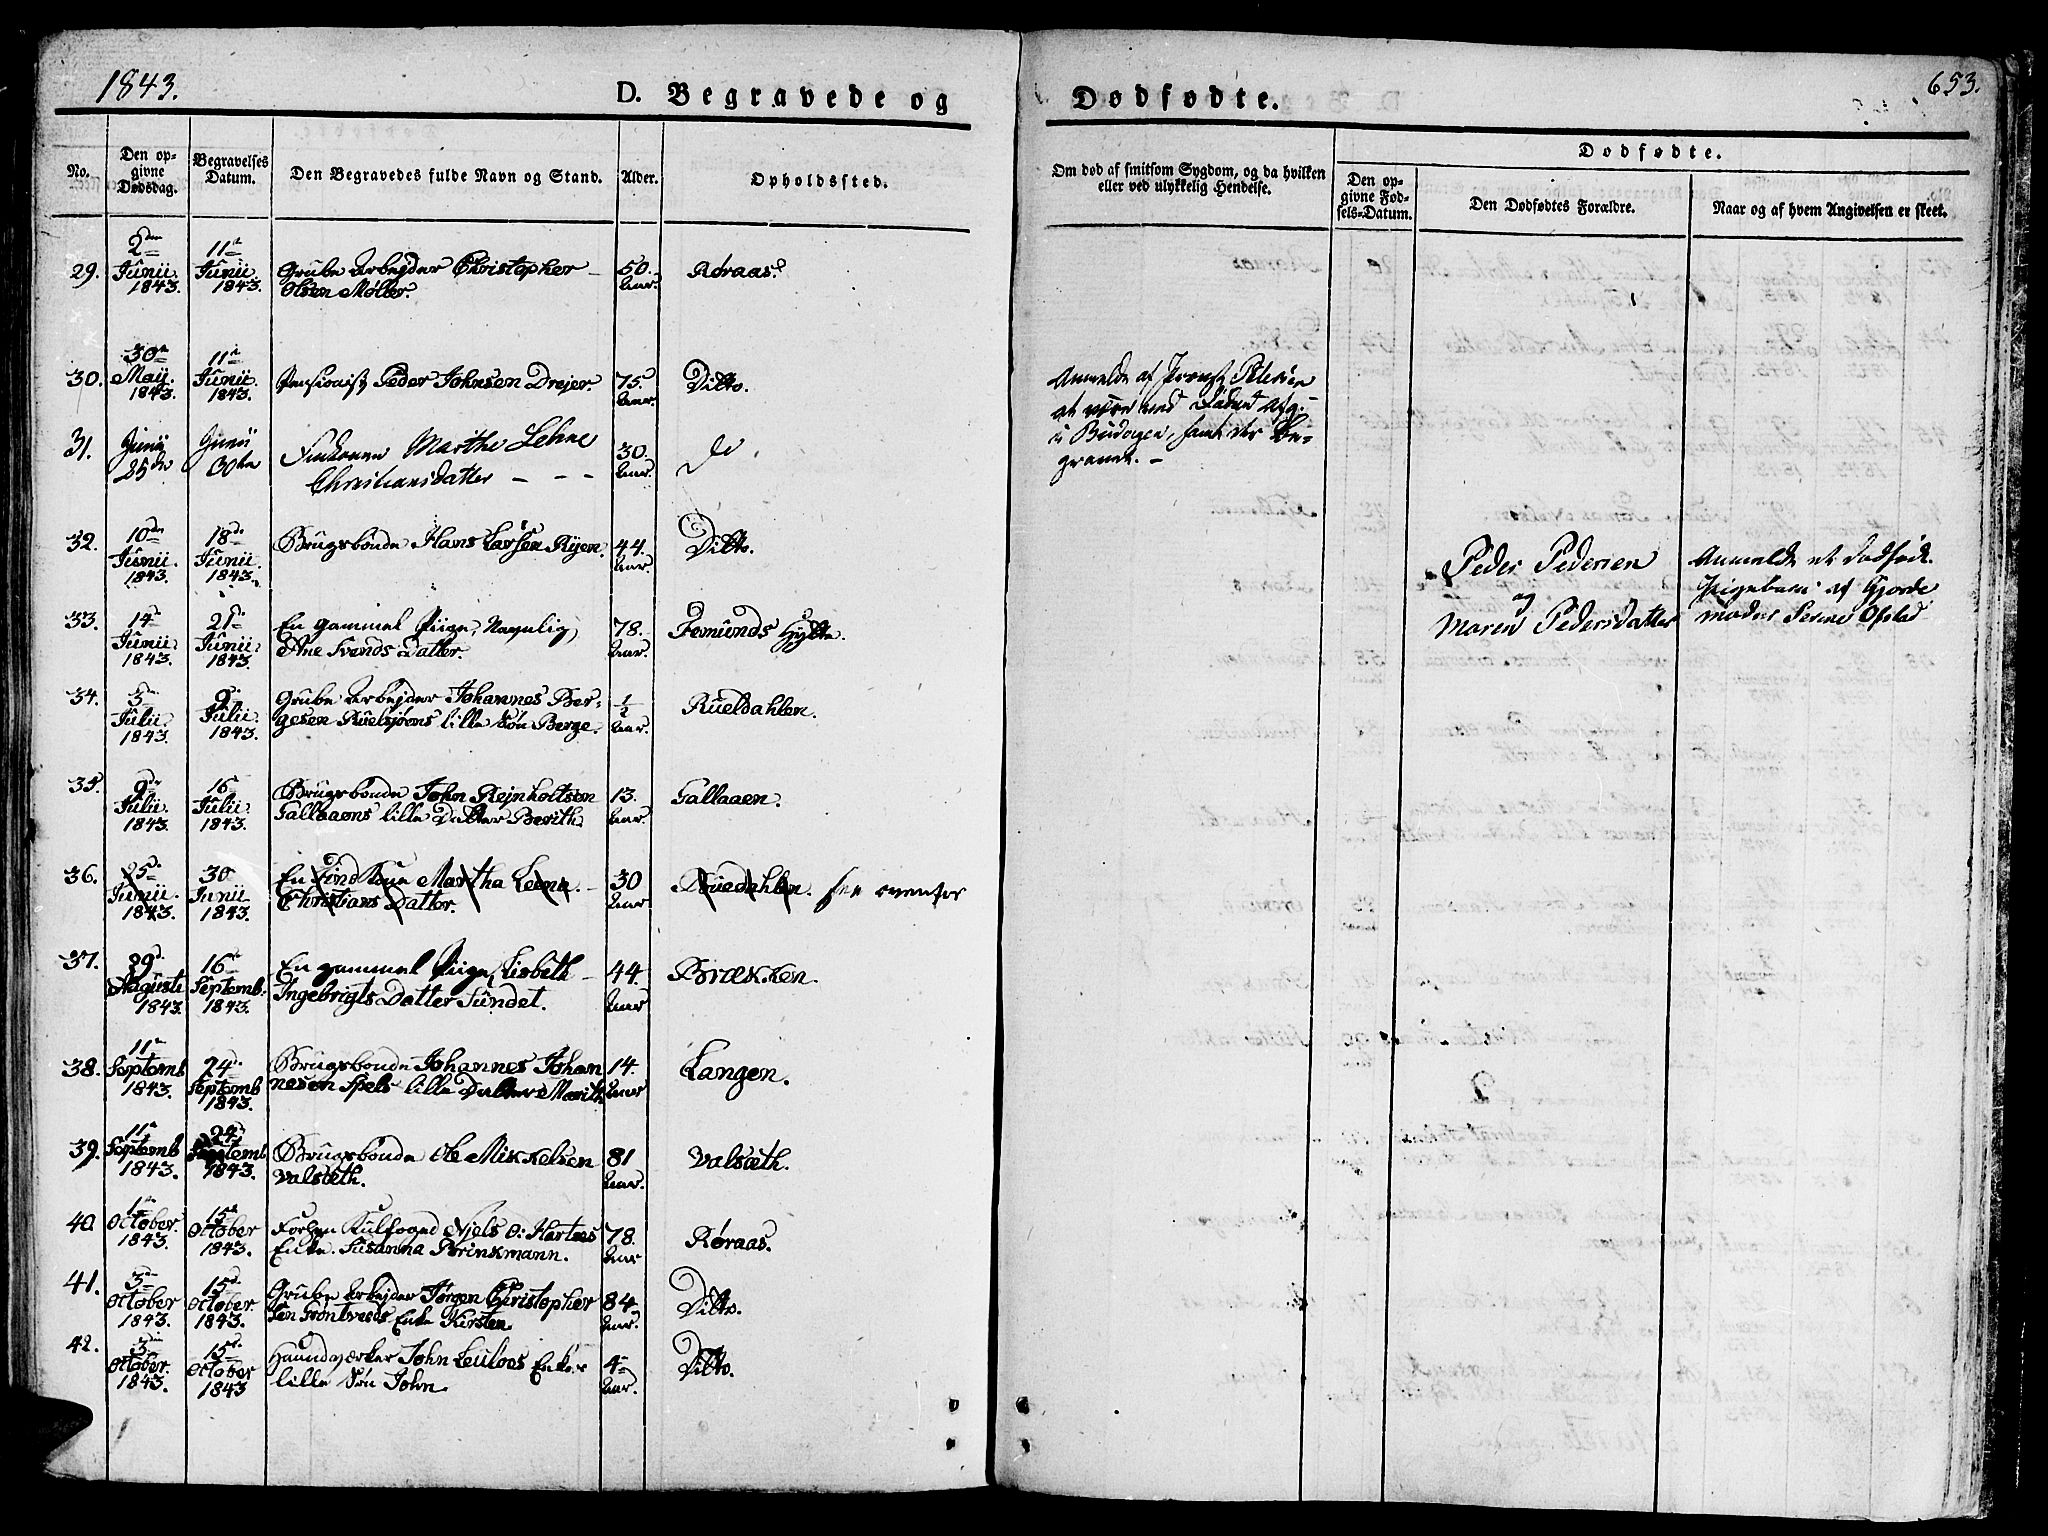 1843.
D. Begravede og
Dødfødte.
653.
No.
Den op-
givne
Dødsdag.
Begravelses
Datum.
Den Begravedes fulde Navn og Stand.
Alder.
Opholdssted.
Om død af smitsom Sygdom, og da hvilken
eller ved ulykkelig Hendelse.
Dødfødte.
Den op-
givne Fød-
sels-Datum.
Den Dødfødtes Forældre.
Naar og af hvem Angivelsen er skeet.
29.
2den
Junii
1843.
11te
Junii
1843.
Grube Arbejder Christopher
Olsen Møller.
50.
Aar.
Røraas.
30.
30te
Maij.
1843.
11te
Junii.
1843.
Pensionist Peder Johnsen Drejer.
75.
Aar.
Ditto.
Anmeldt af Peter
at være ved
i
31.
Junii
25de
Junii
30te
Finkonen Marthe Lehne
Christiansdatter - - -
30.
Aar.
do
32.
10de
Junii
1843.
18de
Junii
1843.
Brugsbonde Hans Larsen Ryen.
44.
Aar.
Ditto.
Peder Pedersen
og
Maren Pedersdatter
Anmeldt et dødfødt
Pigebarn af Gjorde
moder Serine Ofstad
33.
14de
Junii.
1843.
21de
Junii.
1843.
En gammel Piige, Navnlig,
Ane Svends Datter.
78.
Aar.
Femunds Hytte.
34.
3die
Julii.
1843.
9de
Julii
1843.
Grube Arbejder Johannes Ber-
gesen Ruelsjøens lille Søn Berge.
1/2
Aar.
Rueldahlen.
35.
9de
Julii.
1843.
16de
Julii
1843.
Brugsbonde John Rejnholtsen
Gallaaens lille Datter Berith.
13.
Aar.
Gallaaen.
36.
25de
Junii.
1843
30
Junii
1843.
En Find Kone Martha Leena.
Christians Datter.
30
Aar
Ruedahlen. see ovenfor
37.
29de
Augusti
1843.
16de
Septemb:
1843.
En gammel Piige, Lisbeth
Ingebrigts Datter Sundet.
44.
Aar
Brækken.
38.
11te
Septemb
1843.
24de
Septemb
1843.
Brugsbonde Johannes Johan
nesen Spels lille Datter Marith.
14.
Aar
Langen.
39.
11te
Septemb
1843.
24de
Septemb
1843.
Brugsbonde Ole Mikkelsen
Valsæth.
81
Aar.
Valsæth.
40
1te
October.
1843.
15de
October
1843.
Forhen Kulfoged Njels O: Hartses
Enke Susanna Brinkmann.
78.
Aar
Røraas.
41.
3die
October
1843.
15de
October
1843.
Grube Arbejder Jørgen Christopher
sen Grøntvedts Enke Kirsten.
84.
Aar.
Ditto.
42.
3die
October.
1843.
15de
October
1843
Haandværker John
lille Søn John.
4
Aar.
Ditto.